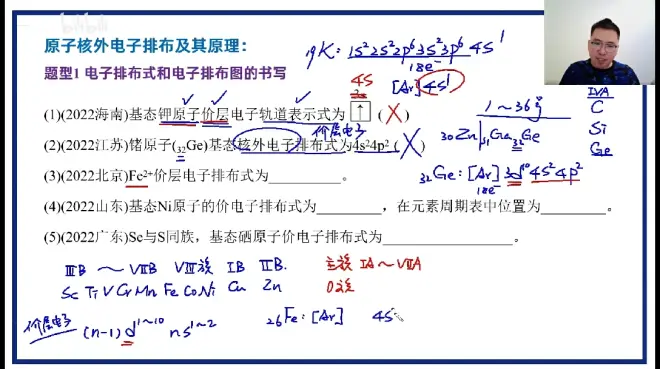 原子核外电子排布及其原理：
₁₉K: 1s²2s²2p⁶3s²3p⁶ 4s¹
18e⁻
题型1 电子排布式和电子排布图的书写
4s
[Ar]4s¹
IVA
C
Si
Ge
(1)(2022海南)基态钾原子价层电子轨道表示式为 ↑ ( X )
1～36号
价层电子
(2)(2022江苏)锗原子(₃₂Ge)基态核外电子排布式为4s²4p² ( X )
₃₀Zn ₃₁Ga ₃₂Ge
(3)(2022北京)Fe²⁺价层电子排布式为________。
₃₂Ge: [Ar] 3d¹⁰ 4s² 4p²
18e⁻
(4)(2022山东)基态Ni原子的价电子排布式为________，在元素周期表中位置为________。
(5)(2022广东)Se与S同族，基态硒原子价电子排布式为________。
ⅢB ～ ⅦB Ⅷ族 ⅠB ⅡB.
主族 ⅠA～ⅦA
Sc Ti V Cr Mn Fe Co Ni Cu Zn
0族
价层电子 (n-1)d¹～¹⁰ ns¹～²
₂₆Fe: [Ar] 4s